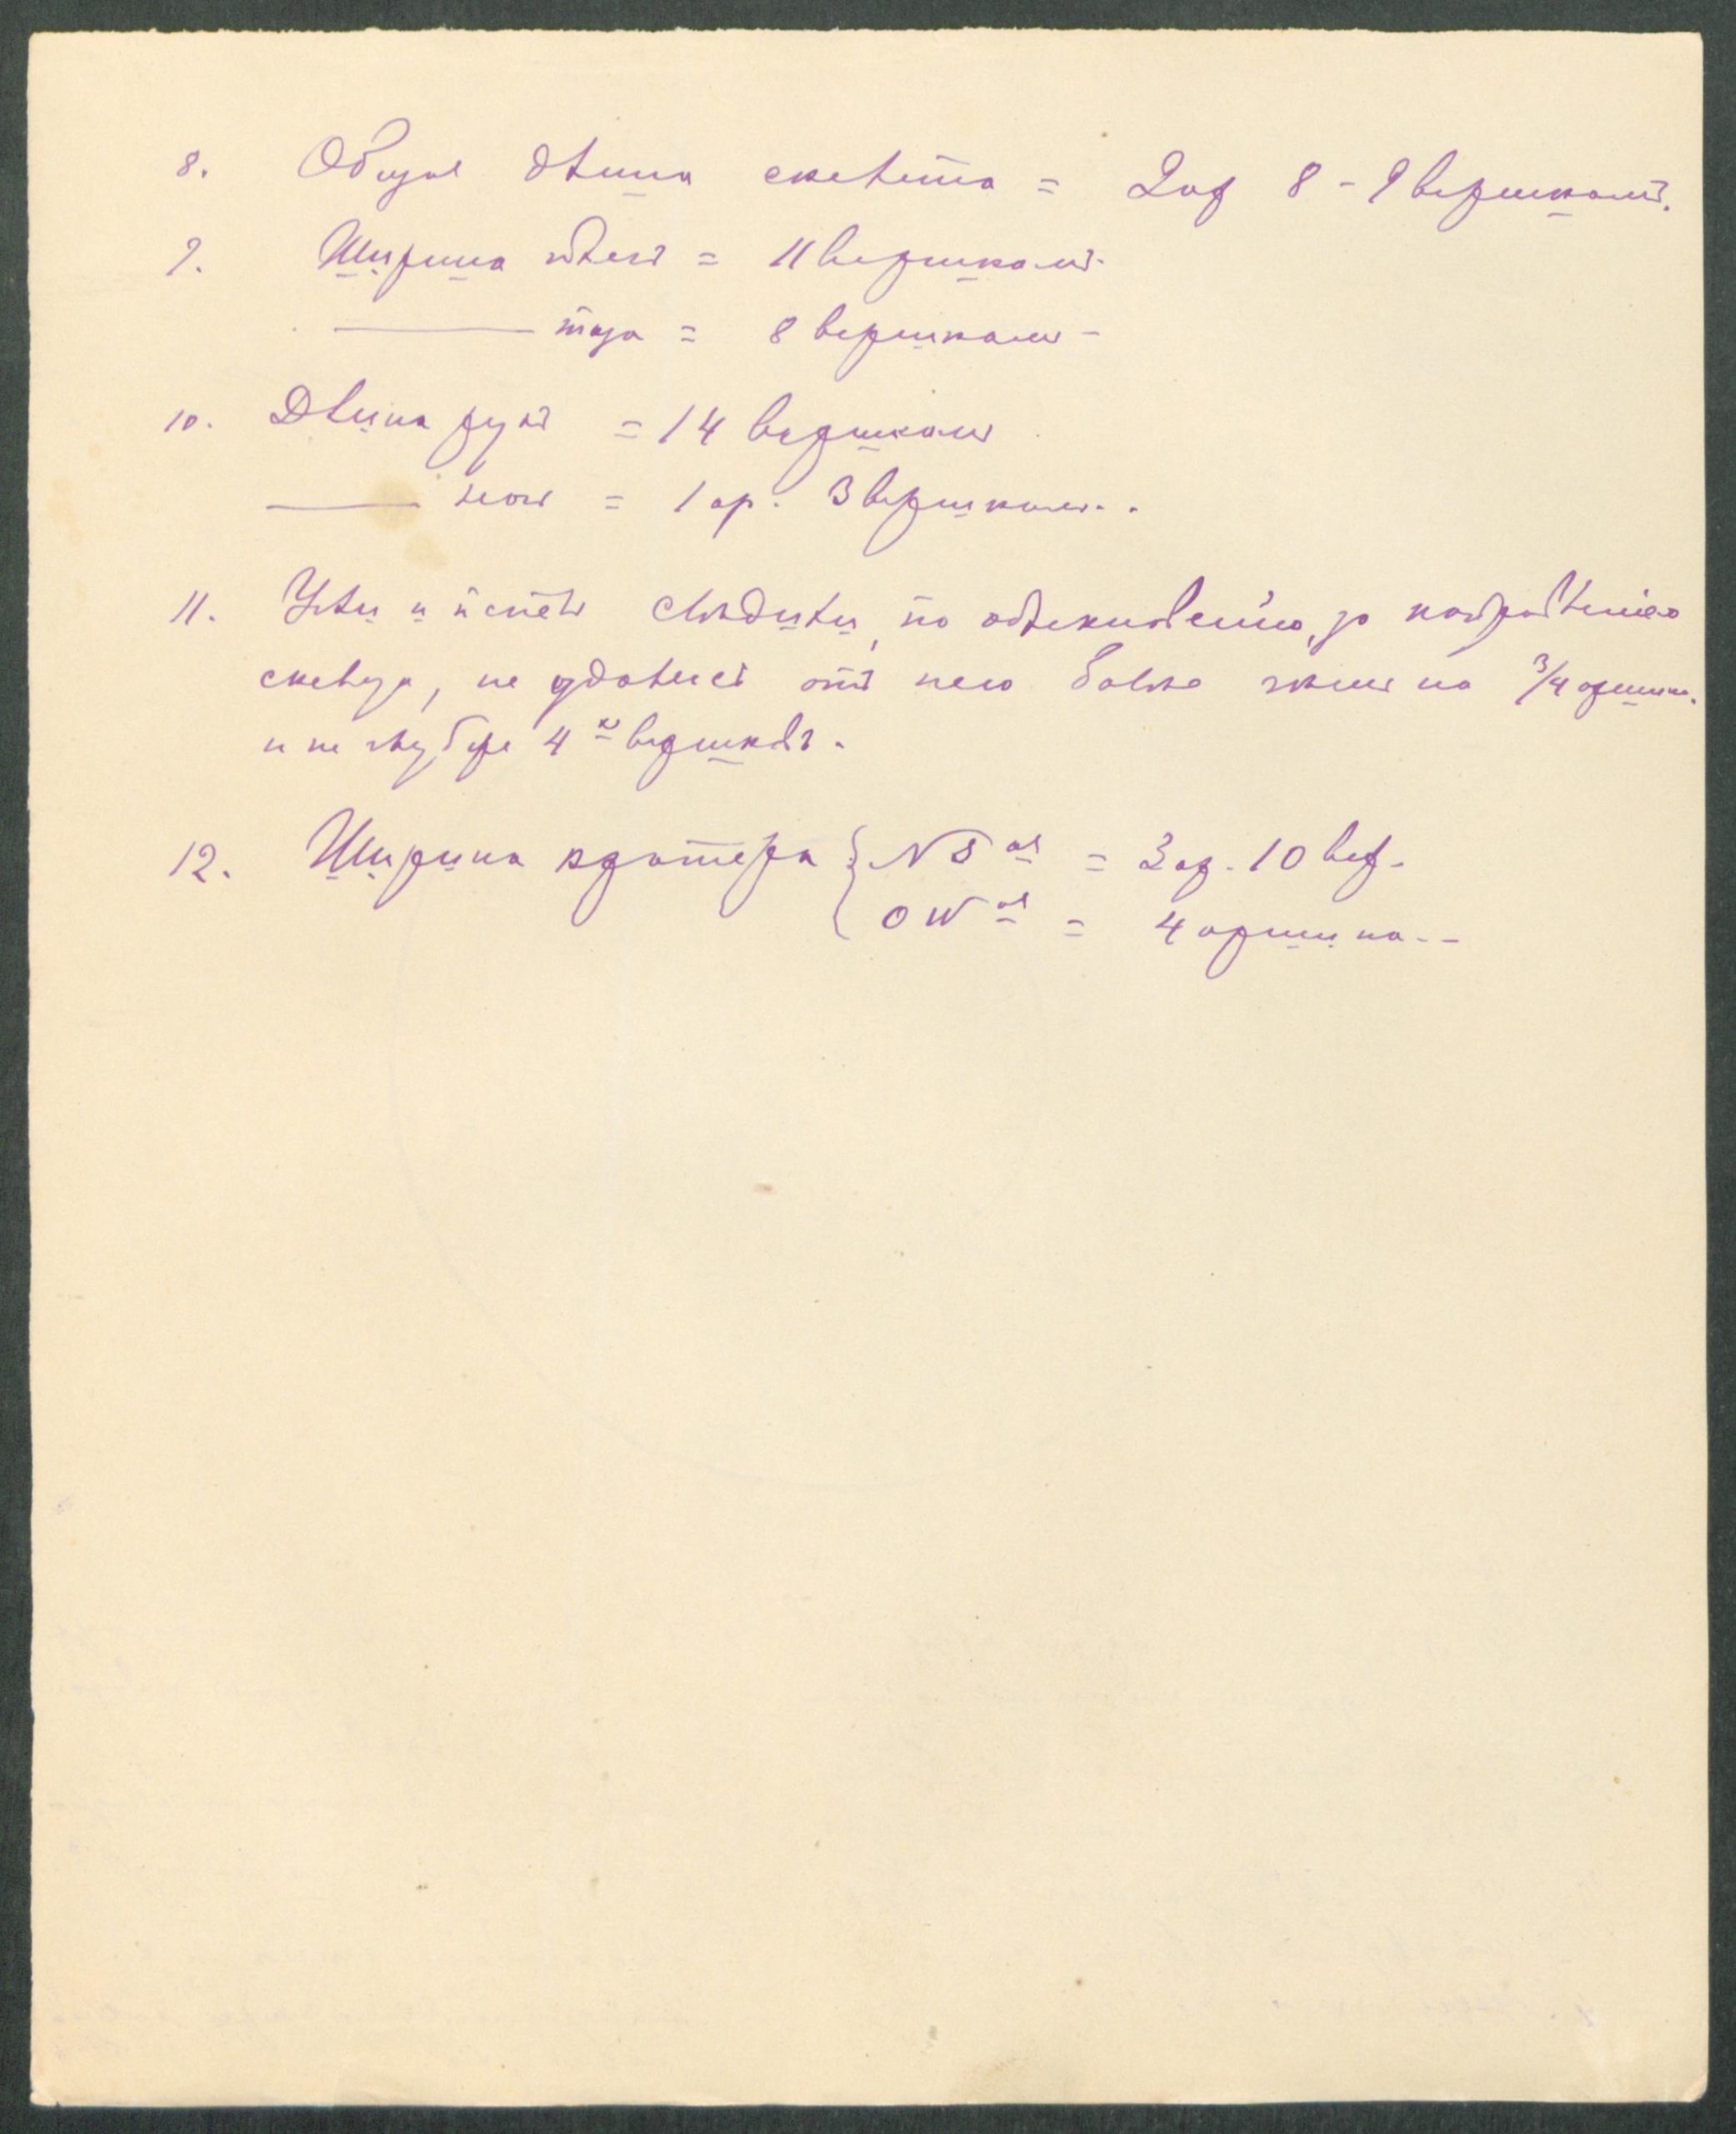 8. Общая длина скелета = 2 ар 8 - 9 вершкамъ.
9. Ширина плечъ = 11 вершкамъ.
——— таза = 8 вершкамъ -
10. Длина рукъ = 14 вершкамъ
——— ногъ = 1 ар. 3 вершкамъ..
11. Угли и пепелъ слѣдили, по обыкновению, за направленіем
скелета, не удаляясь отъ него болѣе чѣмъ на 3/4 аршина.
и не глубже 4 х вершковъ.
12. Ширина кратера { NS ая = 3 ар. 10 вер.
OW ая = 4 аршина.--